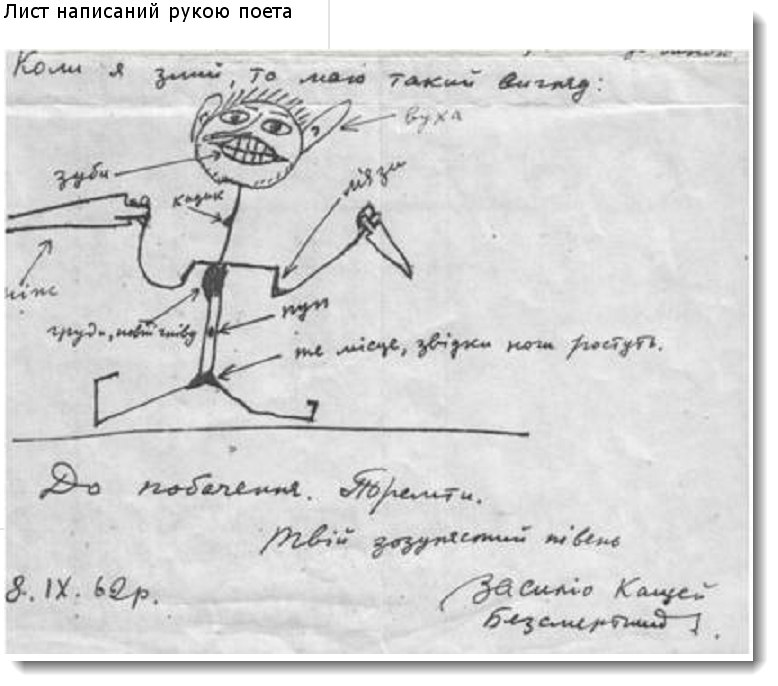 Лист написаний рукою поета
Коли я злий, то маю такий вигляд:
вуха
зуби
м'язи
кадик
ніж
пуп
груди, повні гніву
те місце, звідки ноги ростуть.
До побачення.
Твій зозулястий півень
8. IX. 62р.
Кащей
Безсмертний